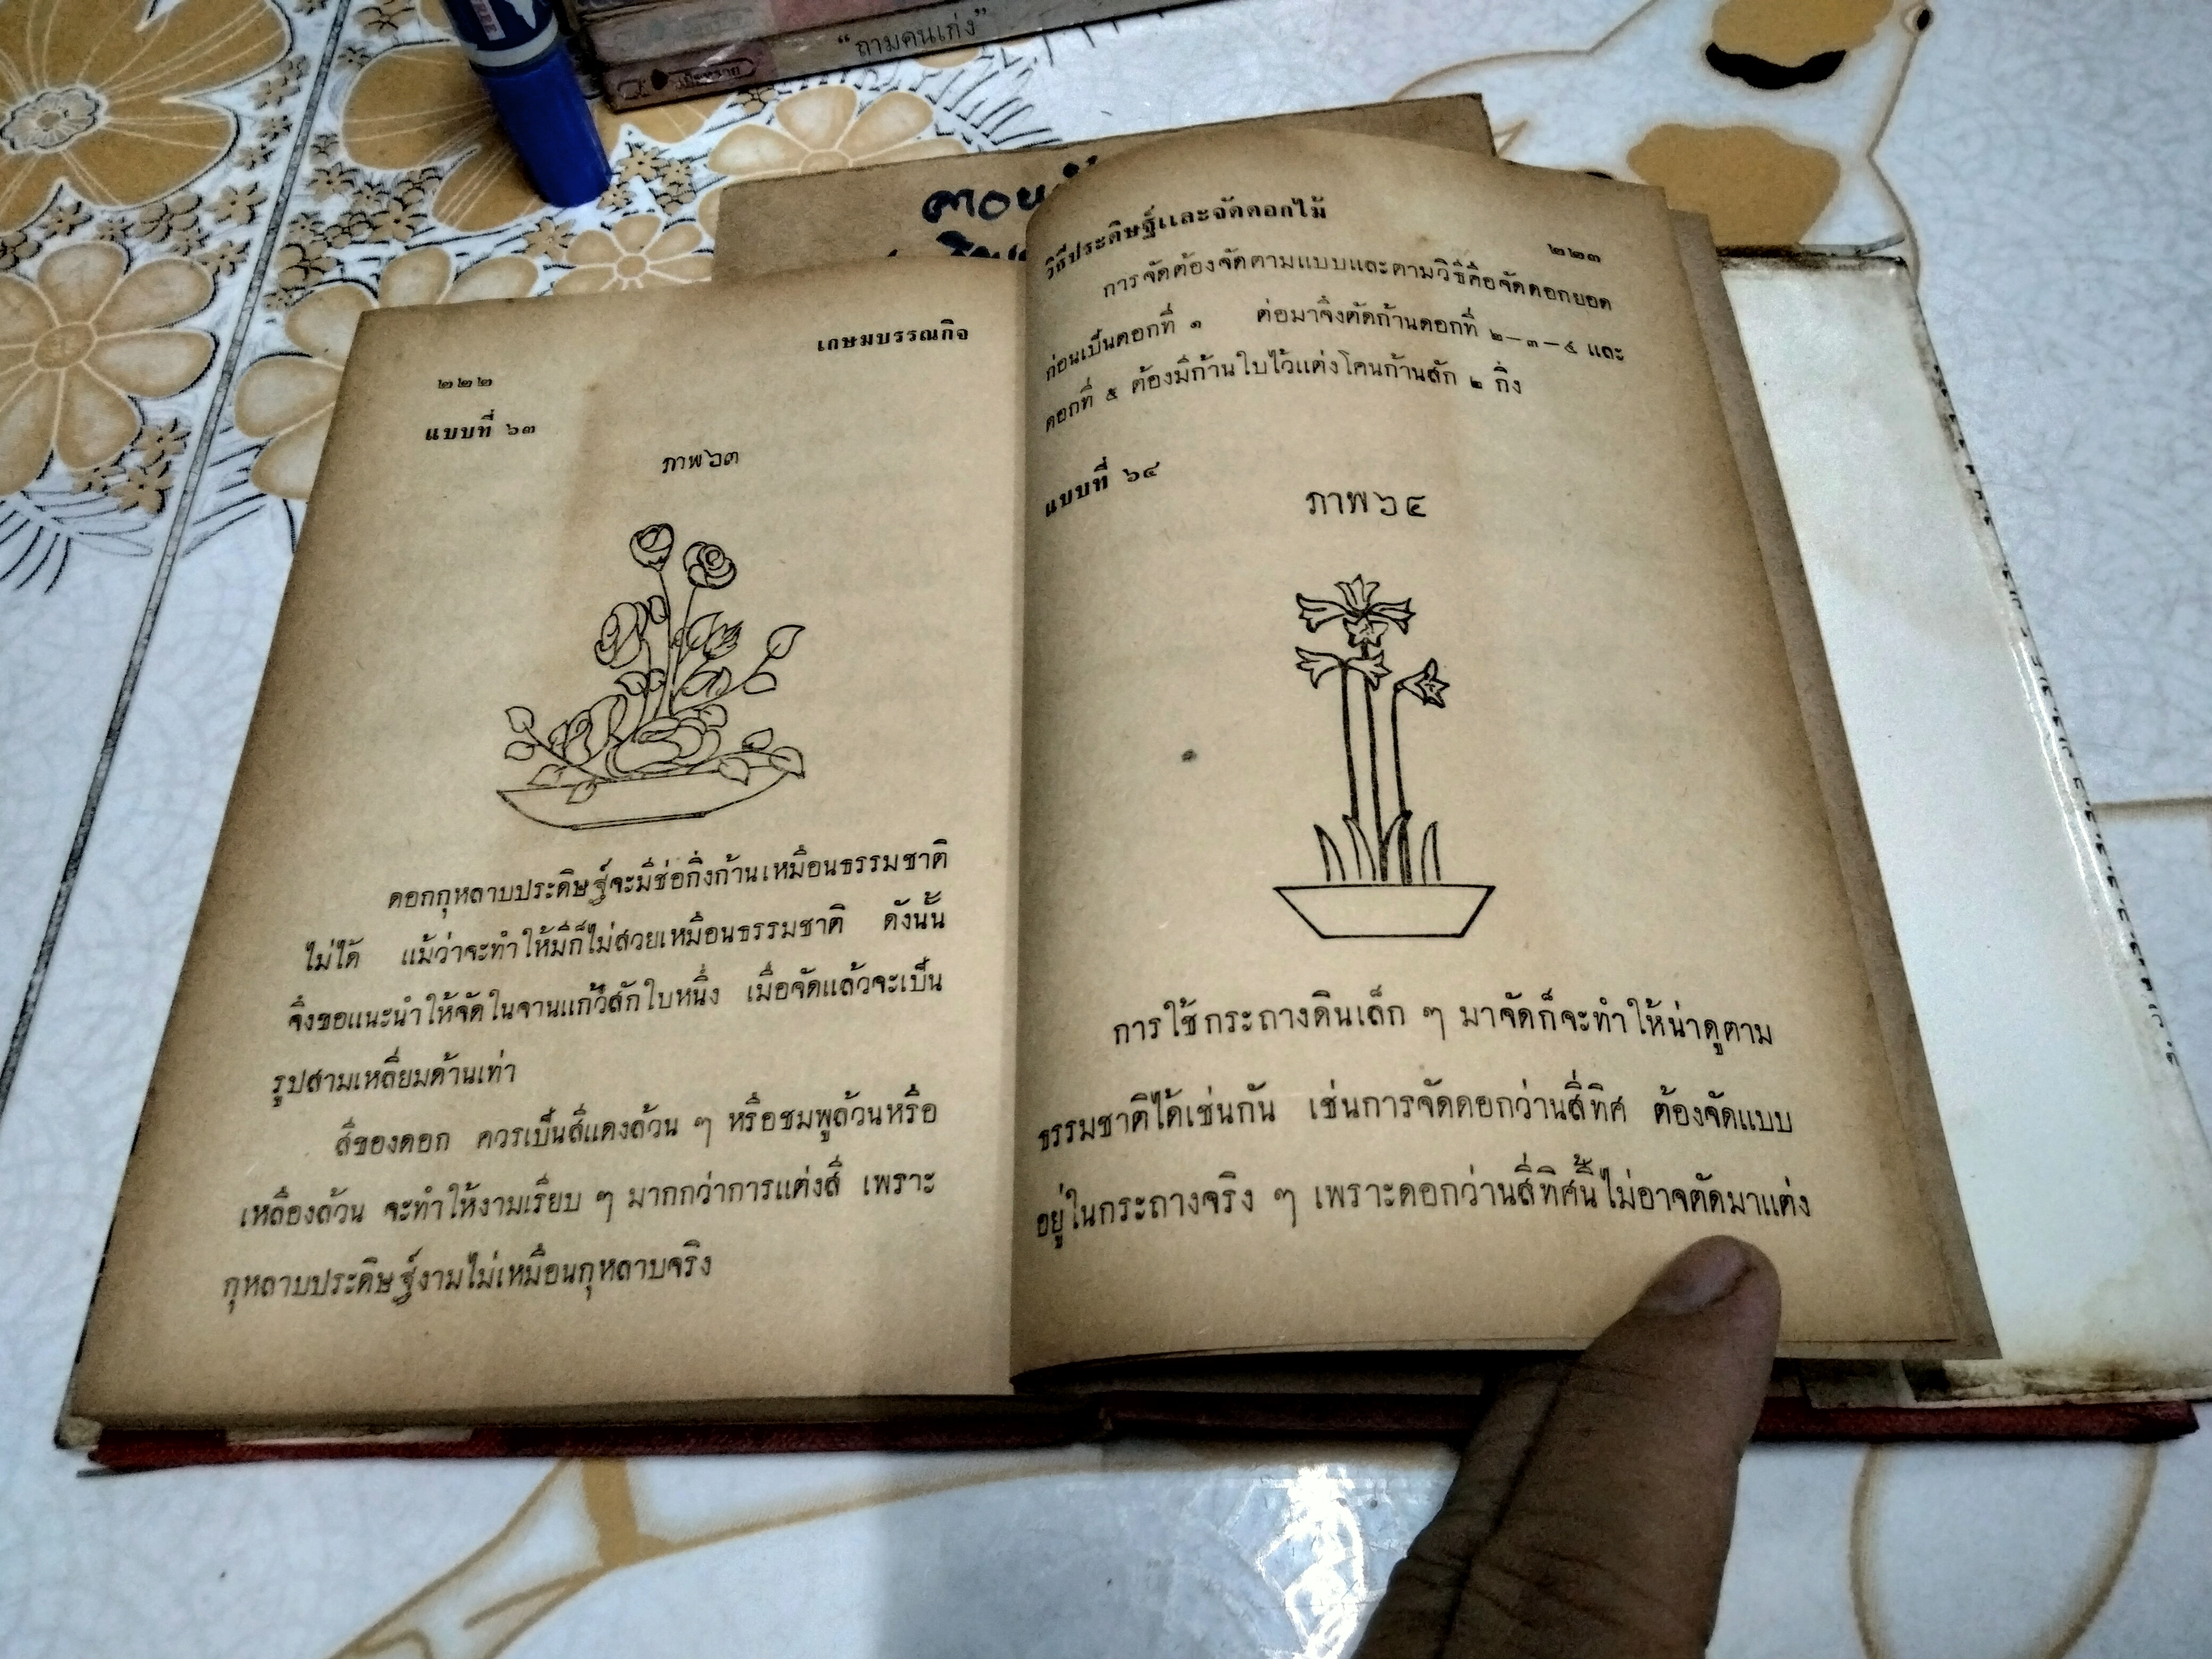 "ถามคนเก่ง"
๒๒๒
เกษมบรรณกิจ
แบบที่ ๖๓
ภาพ๖๓
ดอกกุหลาบประดิษฐ์จะมีช่อกิ่งก้านเหมือนธรรมชาติ
ไม่ได้ แม้ว่าจะทำให้มีก็ไม่สวยเหมือนธรรมชาติ ดังนั้น
จึงขอแนะนำให้จัดในจานแก้วสักใบหนึ่ง เมื่อจัดแล้วจะเป็น
รูปสามเหลี่ยมด้านเท่า
สีของดอก ควรเป็นสีแดงล้วน ๆ หรือชมพูล้วนหรือ
เหลืองล้วน จะทำให้งามเรียบ ๆ มากกว่าการแต่งสี เพราะ
กุหลาบประดิษฐ์งามไม่เหมือนกุหลาบจริง
วิธีประดิษฐ์และจัดดอกไม้
๒๒๓
การจัดต้องจัดตามแบบและตามวิธีคือจัดดอกยอด
ก่อนเป็นดอกที่ ๑ ต่อมาจึงตัดก้านดอกที่ ๒—๓—๔ และ
ดอกที่ ๕ ต้องมีก้านใบไว้แต่งโคนก้านสัก ๒ กิ่ง
แบบที่ ๖๔
ภาพ๖๔
การใช้กระถางดินเล็ก ๆ มาจัดก็จะทำให้น่าดูตาม
ธรรมชาติได้เช่นกัน เช่นการจัดดอกว่านสี่ทิศ ต้องจัดแบบ
อยู่ในกระถางจริง ๆ เพราะดอกว่านสี่ทิศนี้ไม่อาจตัดมาแต่ง